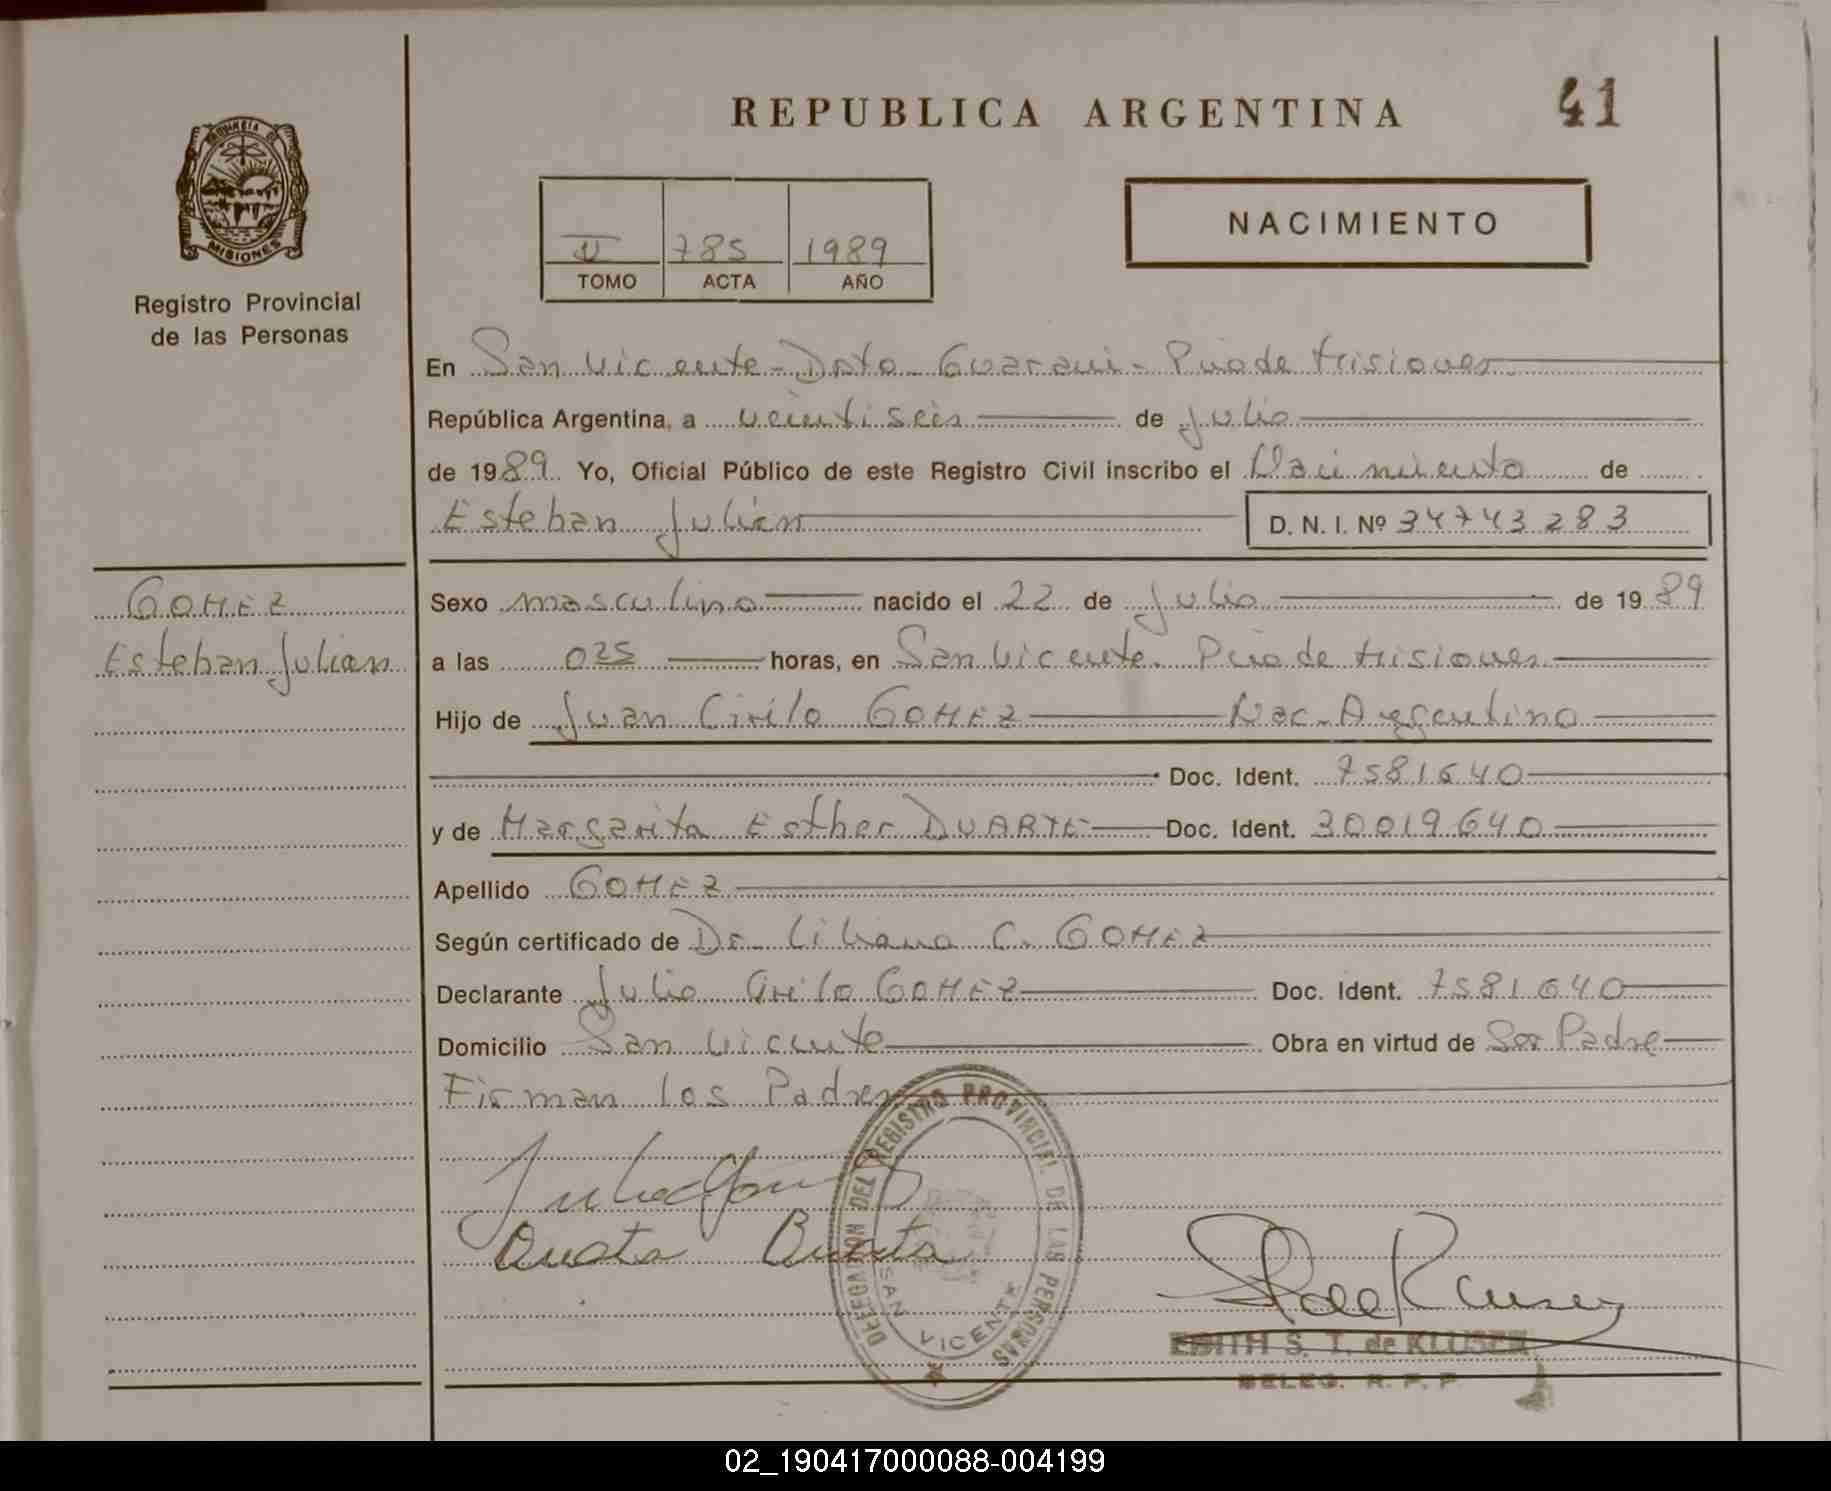 REPUBLICA ARGENTINA
41
PROVINCIA DE
MISIONES
Registro Provincial
de las Personas
II 785 1989
TOMO ACTA AÑO
NACIMIENTO
En San Vicente - Dpto. Guarani - Pcia de Misiones
República Argentina, a veintiseis de Julio
de 1989. Yo, Oficial Público de este Registro Civil inscribo el Nacimiento de
Esteban Julián D. N. I. Nº 34743283
GOMEZ
Esteban Julian
Sexo masculino nacido el 22 de Julio de 1989
a las 025 horas, en San Vicente. Pcia de Misiones
Hijo de Juan Cirilo GOMEZ Nac. Argentino
Doc. Ident. 7581640
y de Margarita Esther DUARTE Doc. Ident. 30019640
Apellido GOMEZ
Según certificado de Dr. Liliana C. GOMEZ
Declarante Julio Cirilo GOMEZ Doc. Ident. 7581640
Domicilio San Vicente Obra en virtud de Ser Padre
Firman los Padres
DELEGACION DEL REGISTRO PROVINCIAL DE LAS PERSONAS
SAN VICENTE
EDITH S. T. de KLUSER
DELEG. R. P. P.
02_190417000088-004199